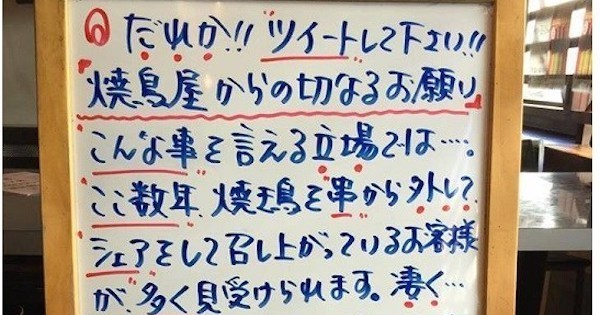 だれか!! ツイートして下さい!!
焼鳥屋からの切なるお願い
こんな事を言える立場では…。
ここ数年、焼鳥を串から外して、
シェアをして召し上がっているお客様
が、多く見受けられます。凄く…